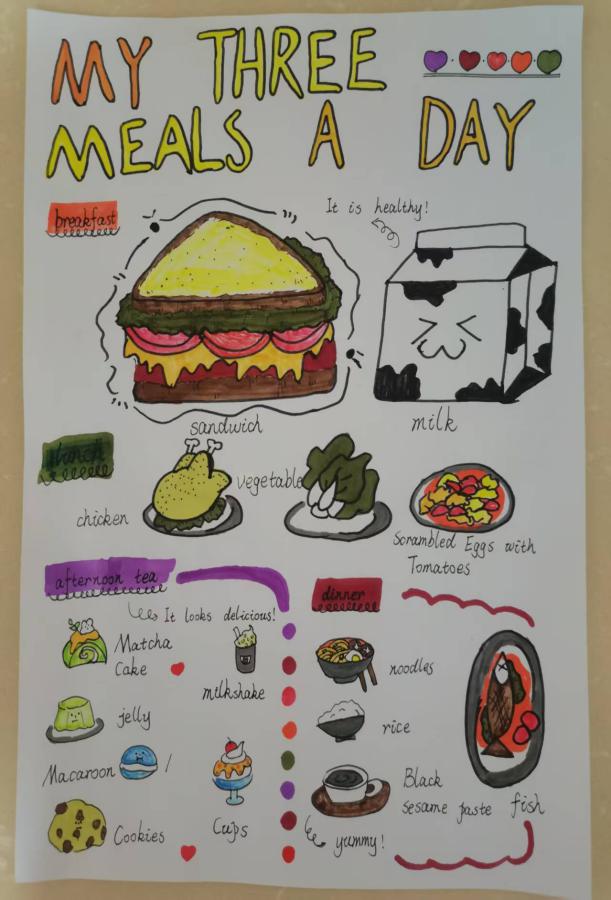 MY THREE
MEALS A DAY
breakfast
It is healthy!
sandwich
milk
lunch
chicken
vegetable
Scrambled Eggs with
Tomatoes
afternoon tea
It looks delicious!
Matcha
Cake
milkshake
jelly
Macaroon
Cups
Cookies
dinner
noodles
rice
Black
sesame paste
fish
yummy!